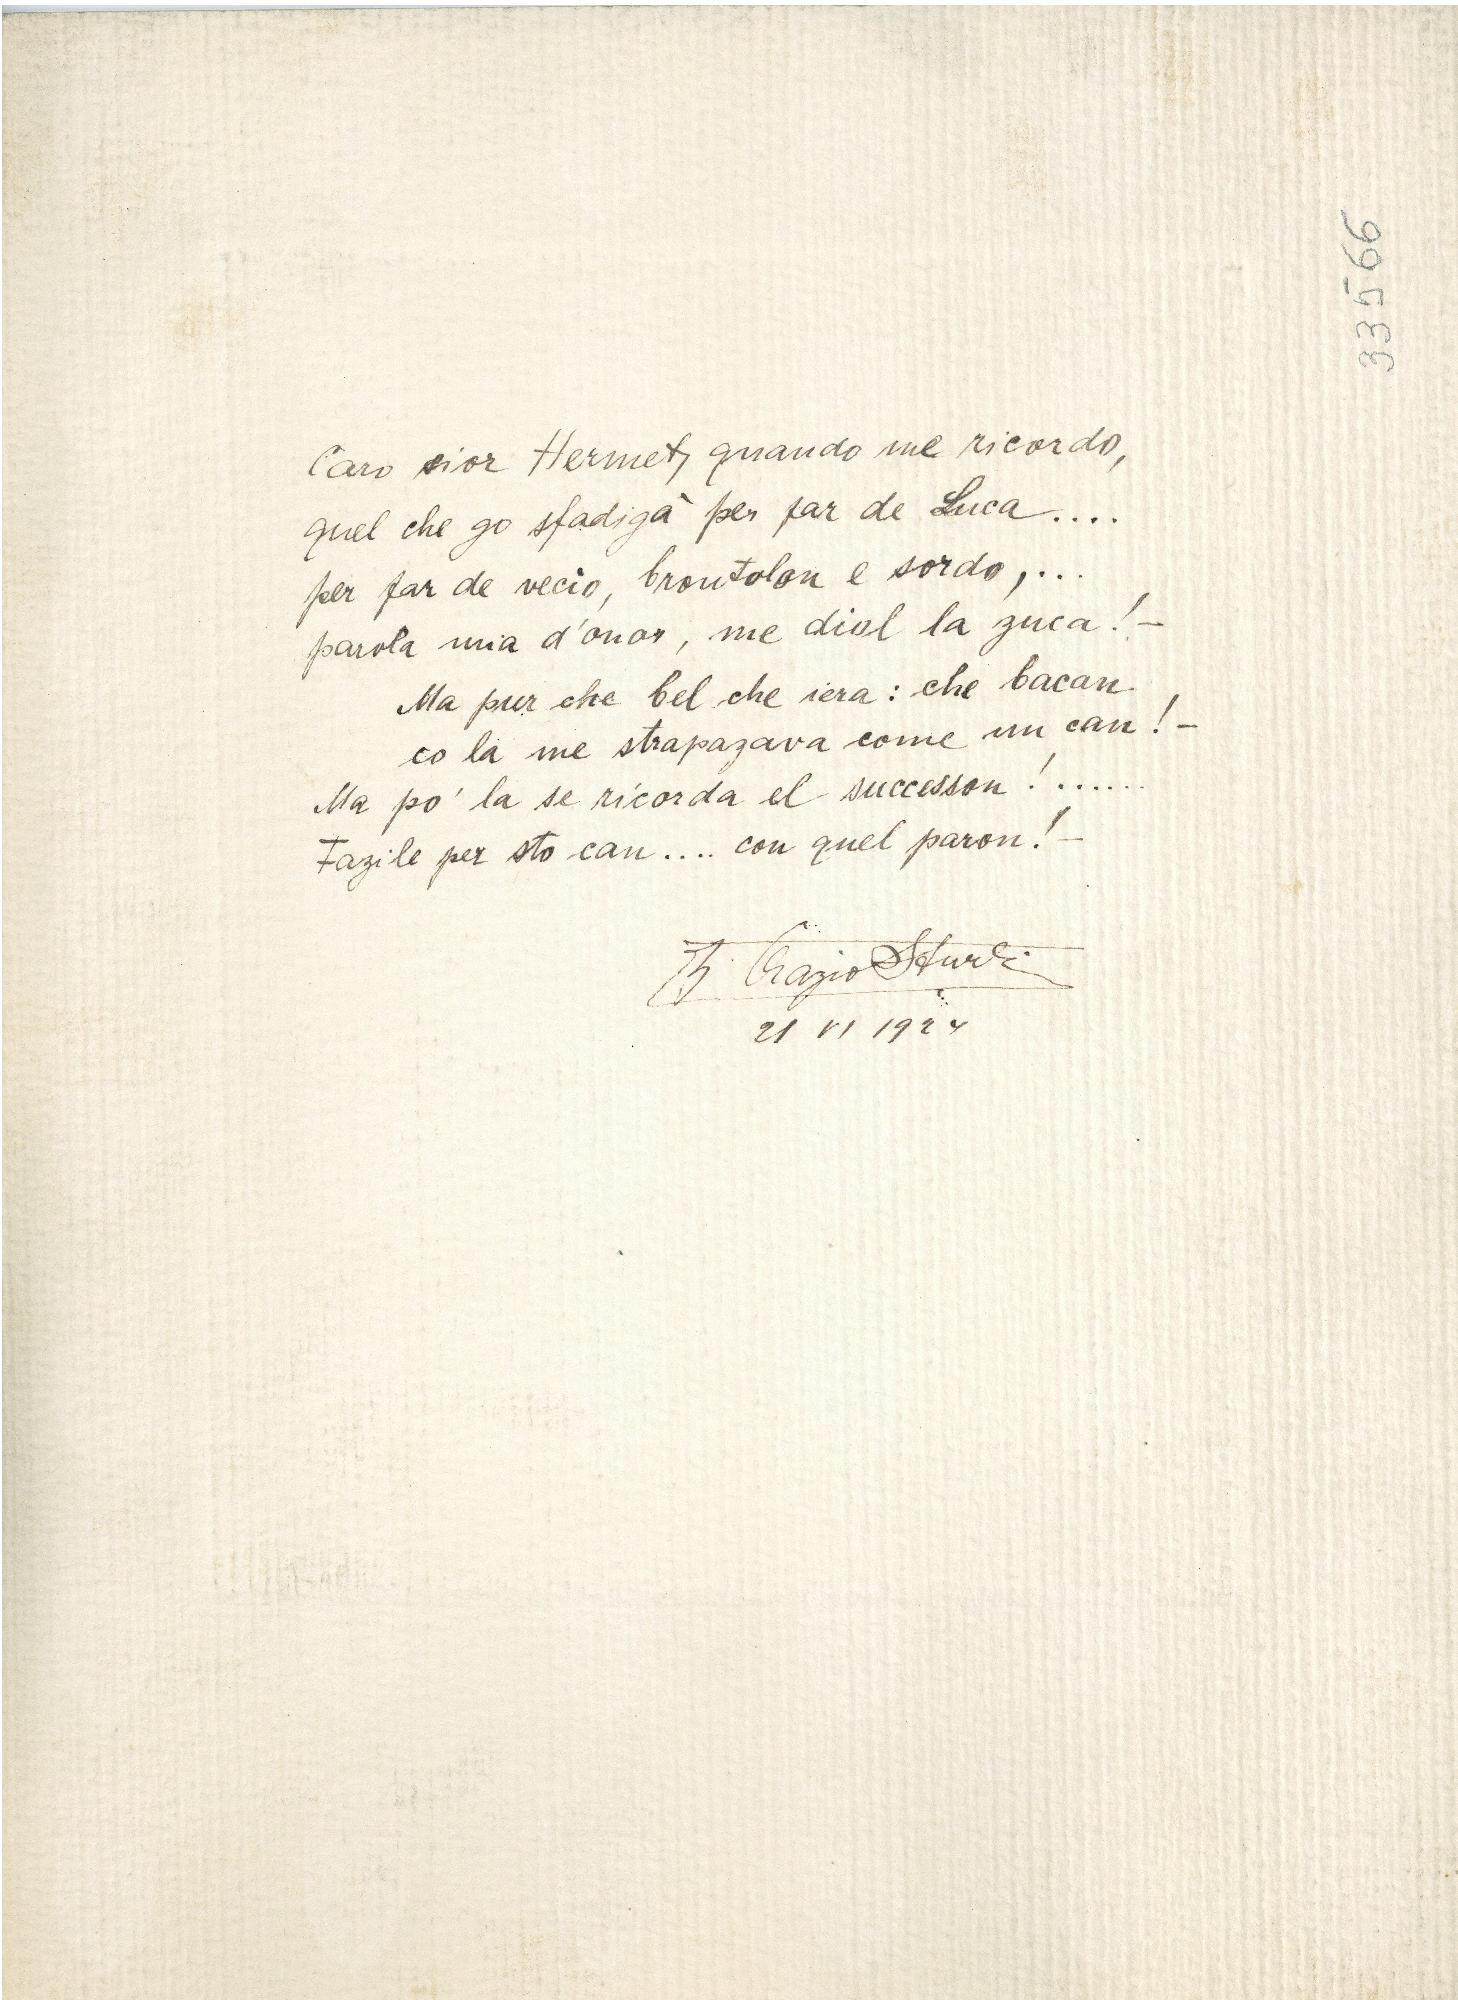 Caro sior Hermet, quando me ricordo,
quel che go sfadigà per far de Luca....
per far de vecio, brontolon e sordo,...
parola mia d'onor, me diol la zuca!-
Ma pur che bel che iera: che bacan
co la me strapazava come un can!-
Ma po' la se ricorda el successon!......
Fazile per sto can.... con quel paron!-
Orazio
21 VI 192
33566